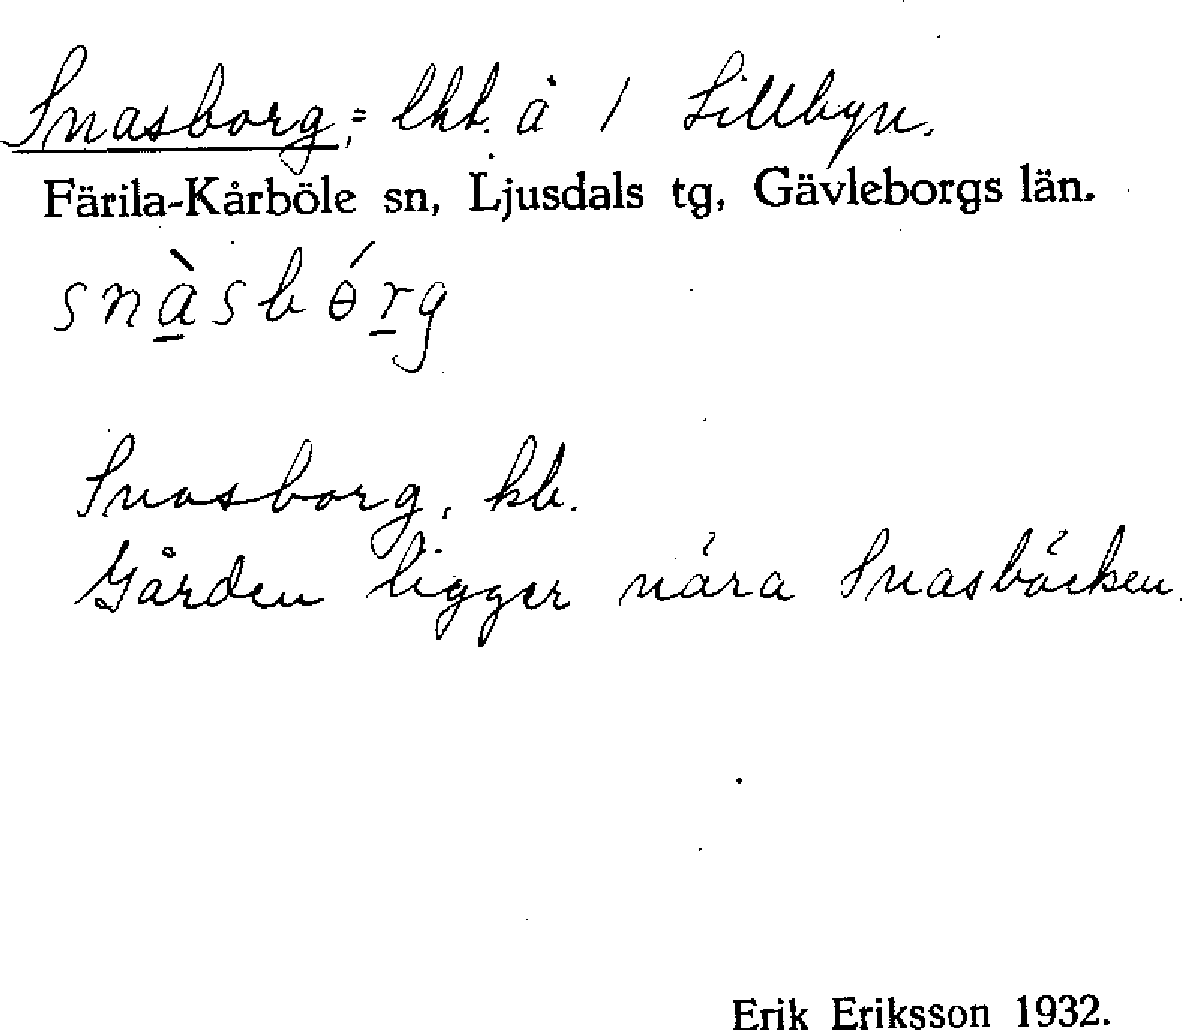 Snasborg, = lht. å 1 Lillbyn.
Färila-Kårböle sn, Ljusdals tg, Gävleborgs län.
snàsbɵ́rg
Snasborg, kb.
Gården ligger nära Snasbäcken.
Erik Eriksson 1932.